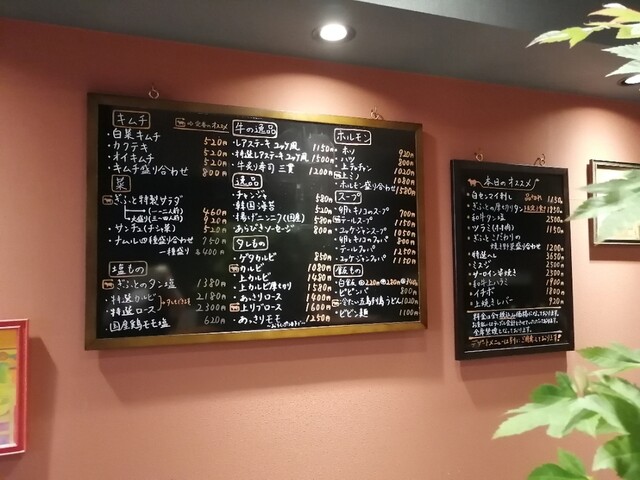 キムチ
・白菜キムチ 520円
・カクテキ 520円
・オイキムチ 520円
・キムチ盛り合わせ 800円
菜
ぎゅっと特製サラダ
460円
920円
・サンチュ(チシャ菜) 520円
・ナムル四種盛り合わせ 750円
一種盛り 各400円
塩もの
ぎゅっとのタン塩 1380円
・特選カルビ 2180円
・特選ロース 2300円
・国産鶏モモ塩 620円
牛の逸品
・レアステーキ ユッケ風 1150円
・特選レアステーキ ユッケ風 1500円
・牛炙り寿司 三貫 1200円
逸品
・チャンジャ 580円
・韓国海苔
・揚げニンニク(国産) 580円
・あらびきソーセージ 800円
タレもの
・ゲタカルビ 850円
カルビ 1080円
・上カルビ 1480円
・上カルビ厚切り 1580円
・あっさりロース 1400円
上リブロース 1600円
・あっさりモモ 1250円
ホルモン
・ホソ 920円
・ハツ 800円
・上テッチャン 1020円
上ミノ 1080円
・ホルモン盛り合わせ 1580円
スープ
・卵とキノコのスープ 700円
テールスープ 1150円
・ユッケジャンスープ 1050円
・卵とキノコクッパ 800円
・テールクッパ 1250円
・ユッケジャンクッパ 1150円
飯もの
・白飯
・ビビンバ 800円
・冷たい五島列島うどん 1020円
・ビビン麺 1100円
本日のオススメ
・白センマイ刺し 1150円
・ぎゅっとの厚切りタン 1950円
・和牛タン塩 2350円
・ツラミ(ホホ肉) 1150円
・ぎゅっとこだわりの
焼き野菜盛り合わせ 1200円
・特選ヘレ 3650円
・ミスジ 2300円
・サーロイン串焼き 2300円
・和牛上ハラミ 1900円
・イチボ 1800円
・上焼きレバー 920円
料金は全て税込み価格になっております。